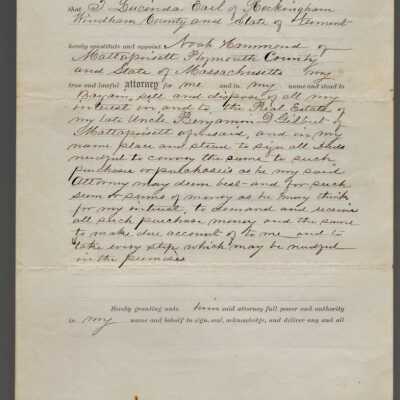 that I Lucinda Earl of Rockingham
Windham County and State of Vermont
hereby constitute and appoint Noah Hammond of
Mattapoisett Plymouth County
and State of Massachusetts my
true and lawful attorney for me and in my name and stead to
Bargain, sell and dispose of all my
interest in and to the Real Estate of
my late Uncle Benjamin D Gilbert of
Mattapoisett aforesaid, and in my
name place and stead to sign all Deeds
needful to convey the same to such
purchaser or purchasers as he my said
Attorney may deem best and for such
sum or sums of money as he may think
for my interest, to demand and receive
all such purchase money and the same
to make due account of to me and to
take every step which may be needful
in the premises
Hereby granting unto him said attorney full power and authority
in my name and behalf to sign, seal, acknowledge, and deliver any and all